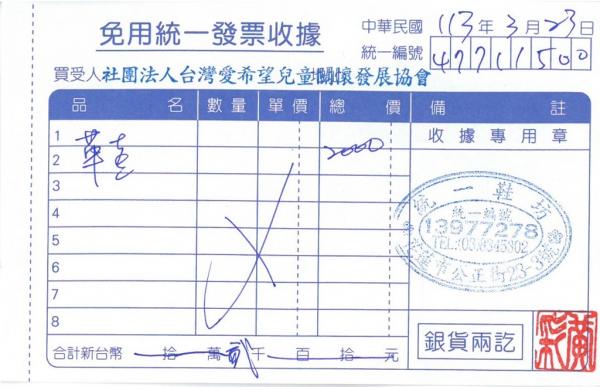 免用統一發票收據
中華民國113年3月23日
統一編號47711500
買受人 社團法人台灣愛希望兒童關懷發展協會
品名 數量 單價 總價 備註
收據專用章
1
2 2000
3
4
5
6
7
8
第一鞋坊
統一編號
13977278
TEL:03.8345302
花蓮市公正街23-3號
合計新台幣 拾 萬 貳 千 百 拾 元
銀貨兩訖